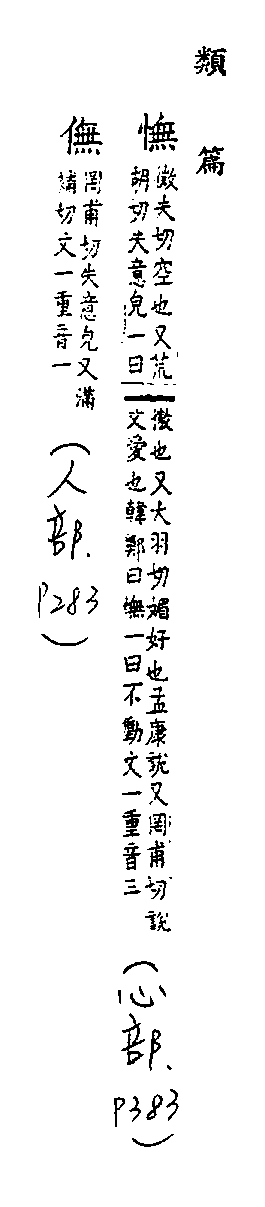 類篇
憮
微夫切空也又荒
胡切失意皃一曰
傲也又大羽切媚好也孟康說又罔甫切說
文愛也韓鄭曰憮一曰不動文一重音三
(心部.P383)
㒇
罔甫切失意皃又滿
補切文一重音一
(人部.P283)